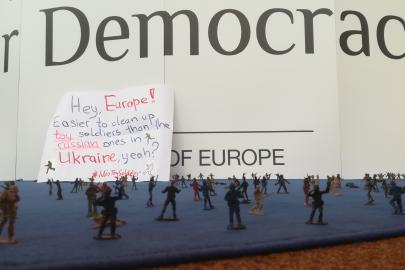 r Democrac
Hey, Europe!
Easier to clean up
toy soldiers than the
russian ones in
Ukraine, yeah?
OF EUROPE